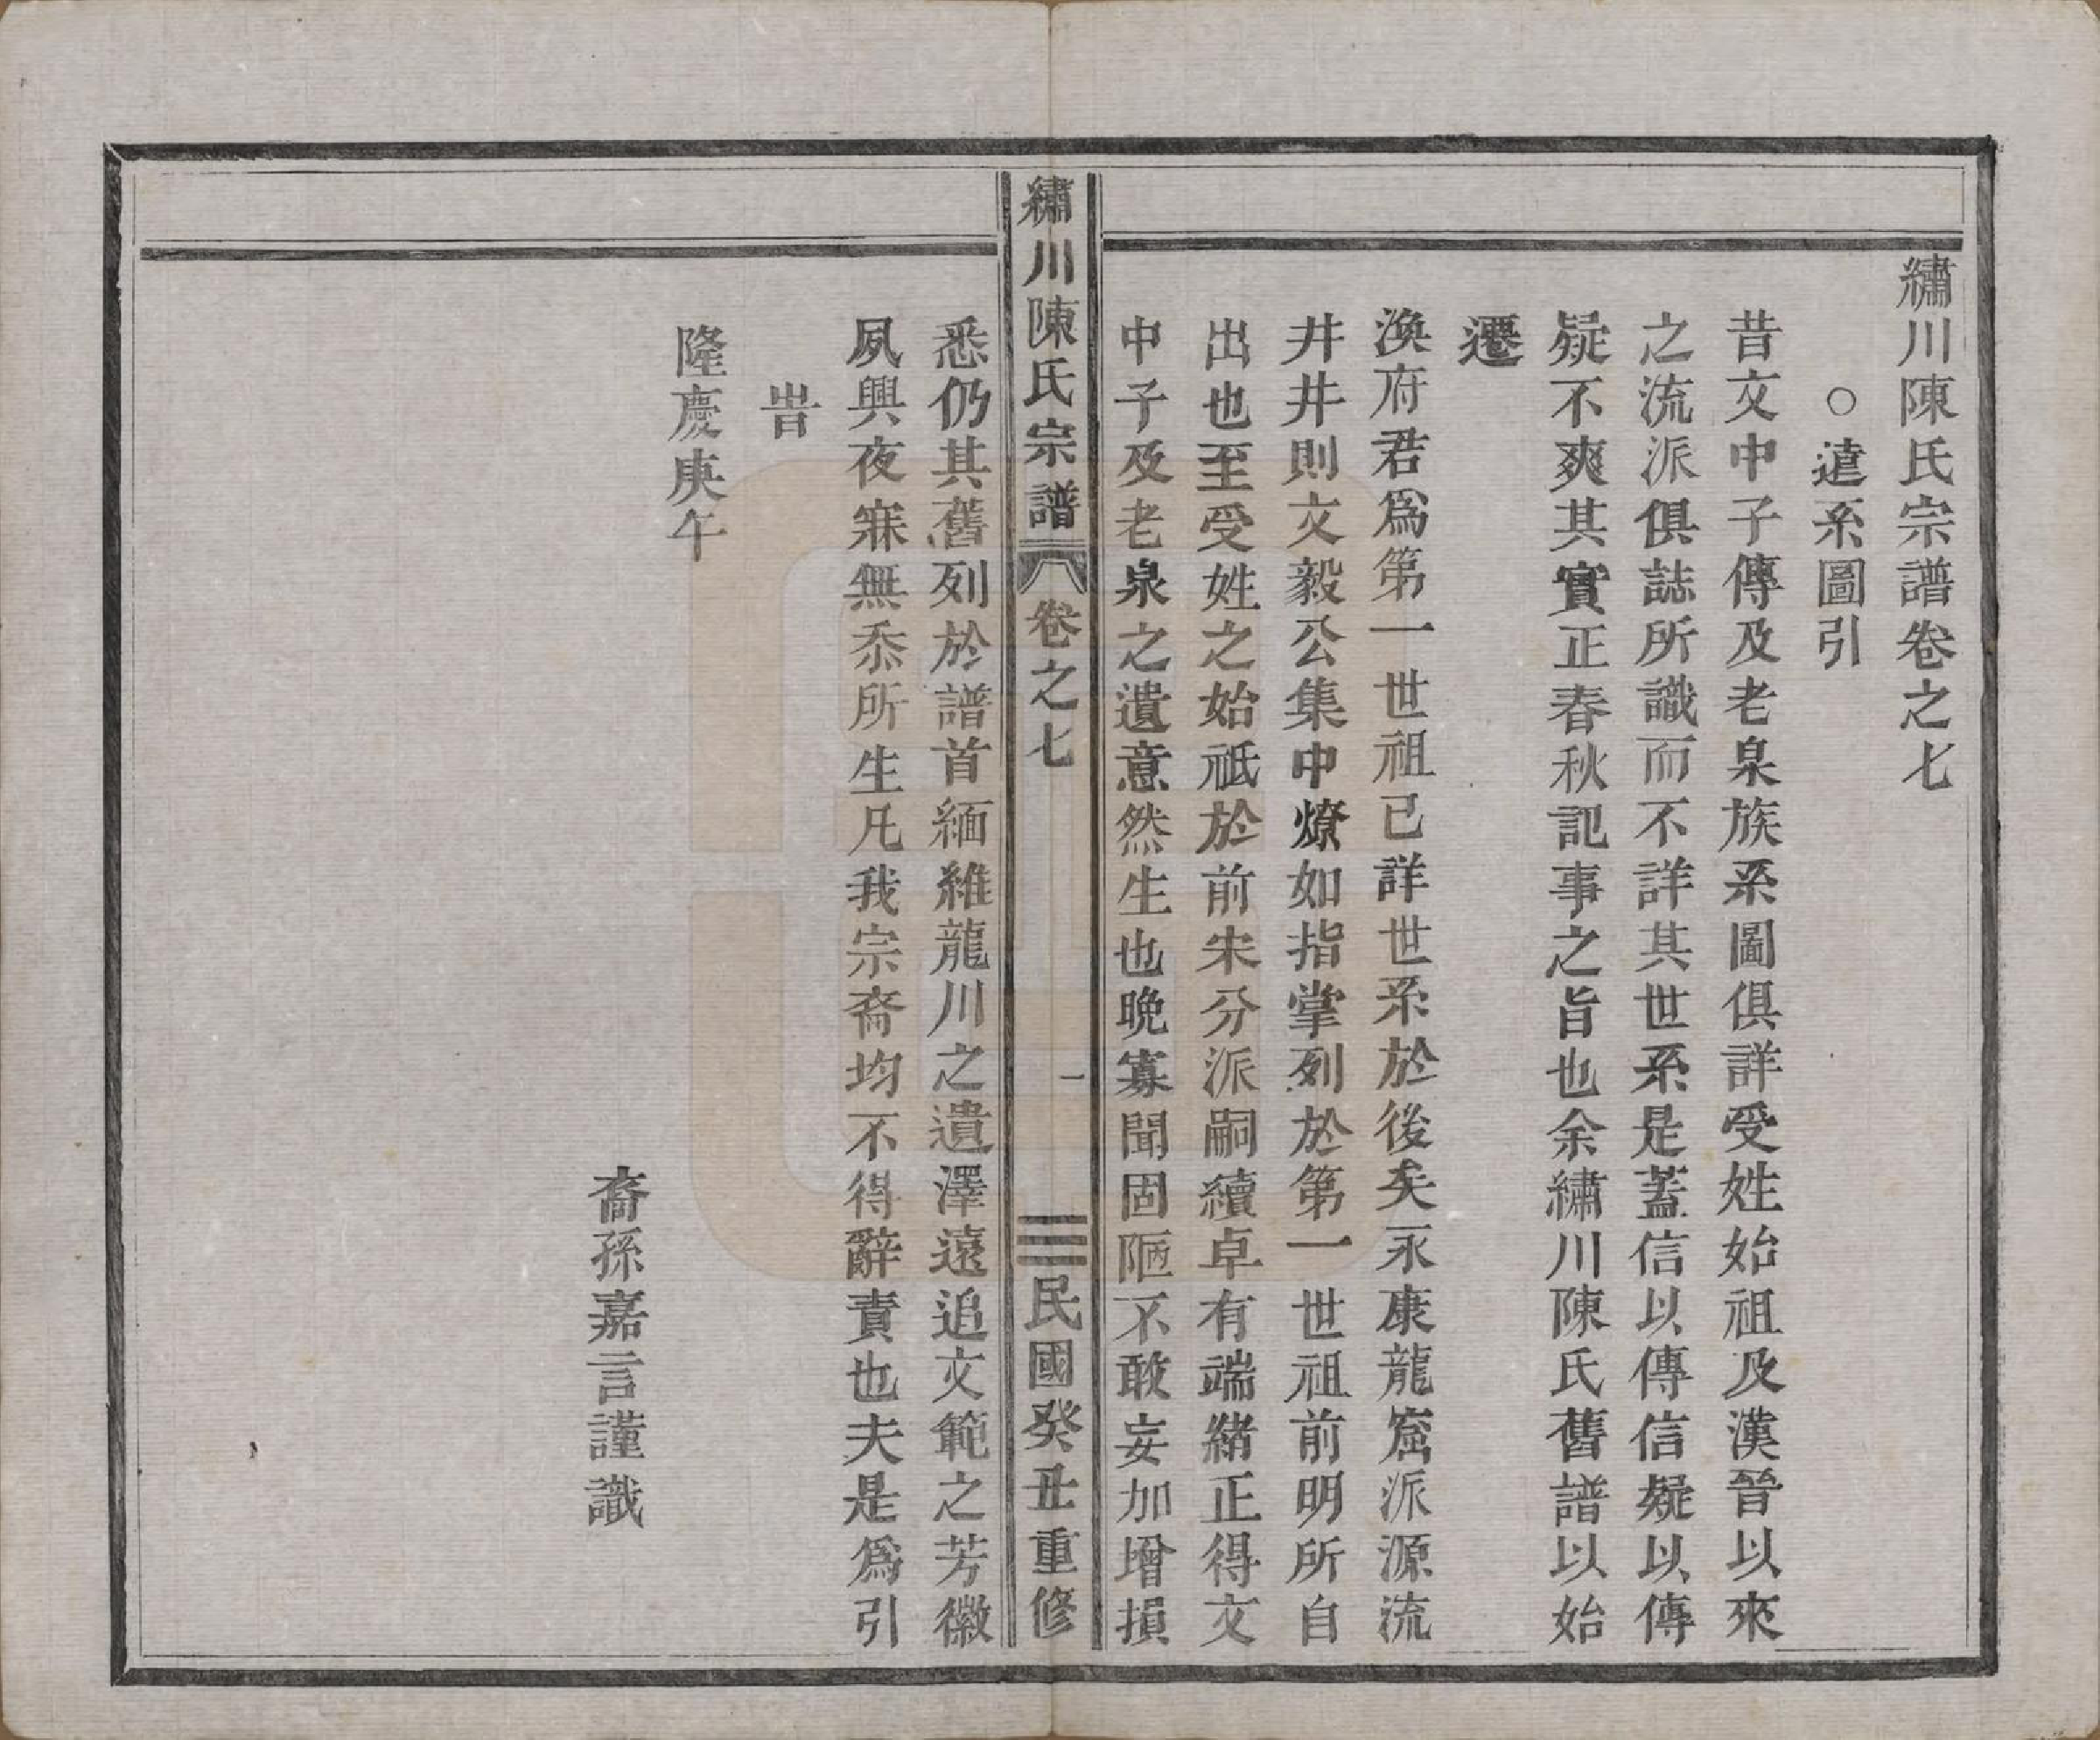 繡川陳氏宗譜卷之七
○遠系圖引
昔文中子傳及老泉族系圖俱詳受姓始祖及漢晉以來
之流派俱誌所識而不詳其世系是蓋信以傳信疑以傳
疑不爽其實正春秋記事之旨也余繡川陳氏舊譜以始
遷
渙府君爲第一世祖已詳世系於後矣永康龍窟派源流
井井則文毅公集中燎如指掌列於第一世祖前明所自
出也至受姓之始祗於前宋分派嗣續卓有端緒正得文
中子及老泉之遺意然生也晚寡聞固陋不敢妄加增損
繡川陳氏宗譜 卷之七 一 民國癸丑重修
悉仍其舊列於譜首緬維龍川之遺澤遠追文範之芳徽
夙興夜寐無忝所生凡我宗裔均不得辭責也夫是爲引
旹
隆慶庚午
裔孫嘉言謹識